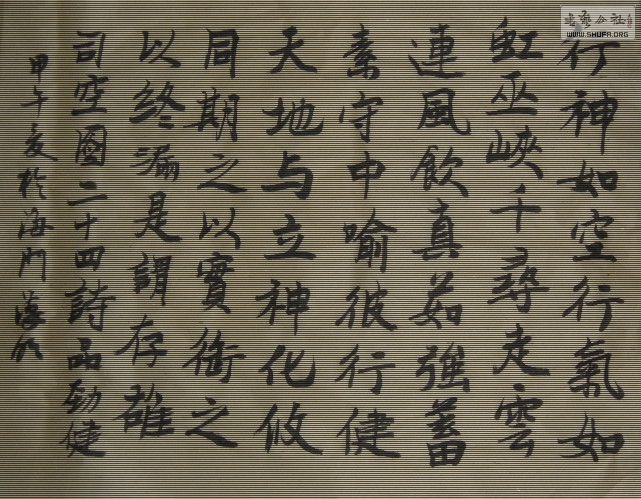 行神如空行氣如
虹巫峽千尋走雲
連風飲真茹強蓄
素守中喻彼行健
天地与立神化攸
同期之以實御之
以終漏是謂存雄
司空圖二十四詩品勁健
甲午夏於海門
WWW.SHUFA.ORG